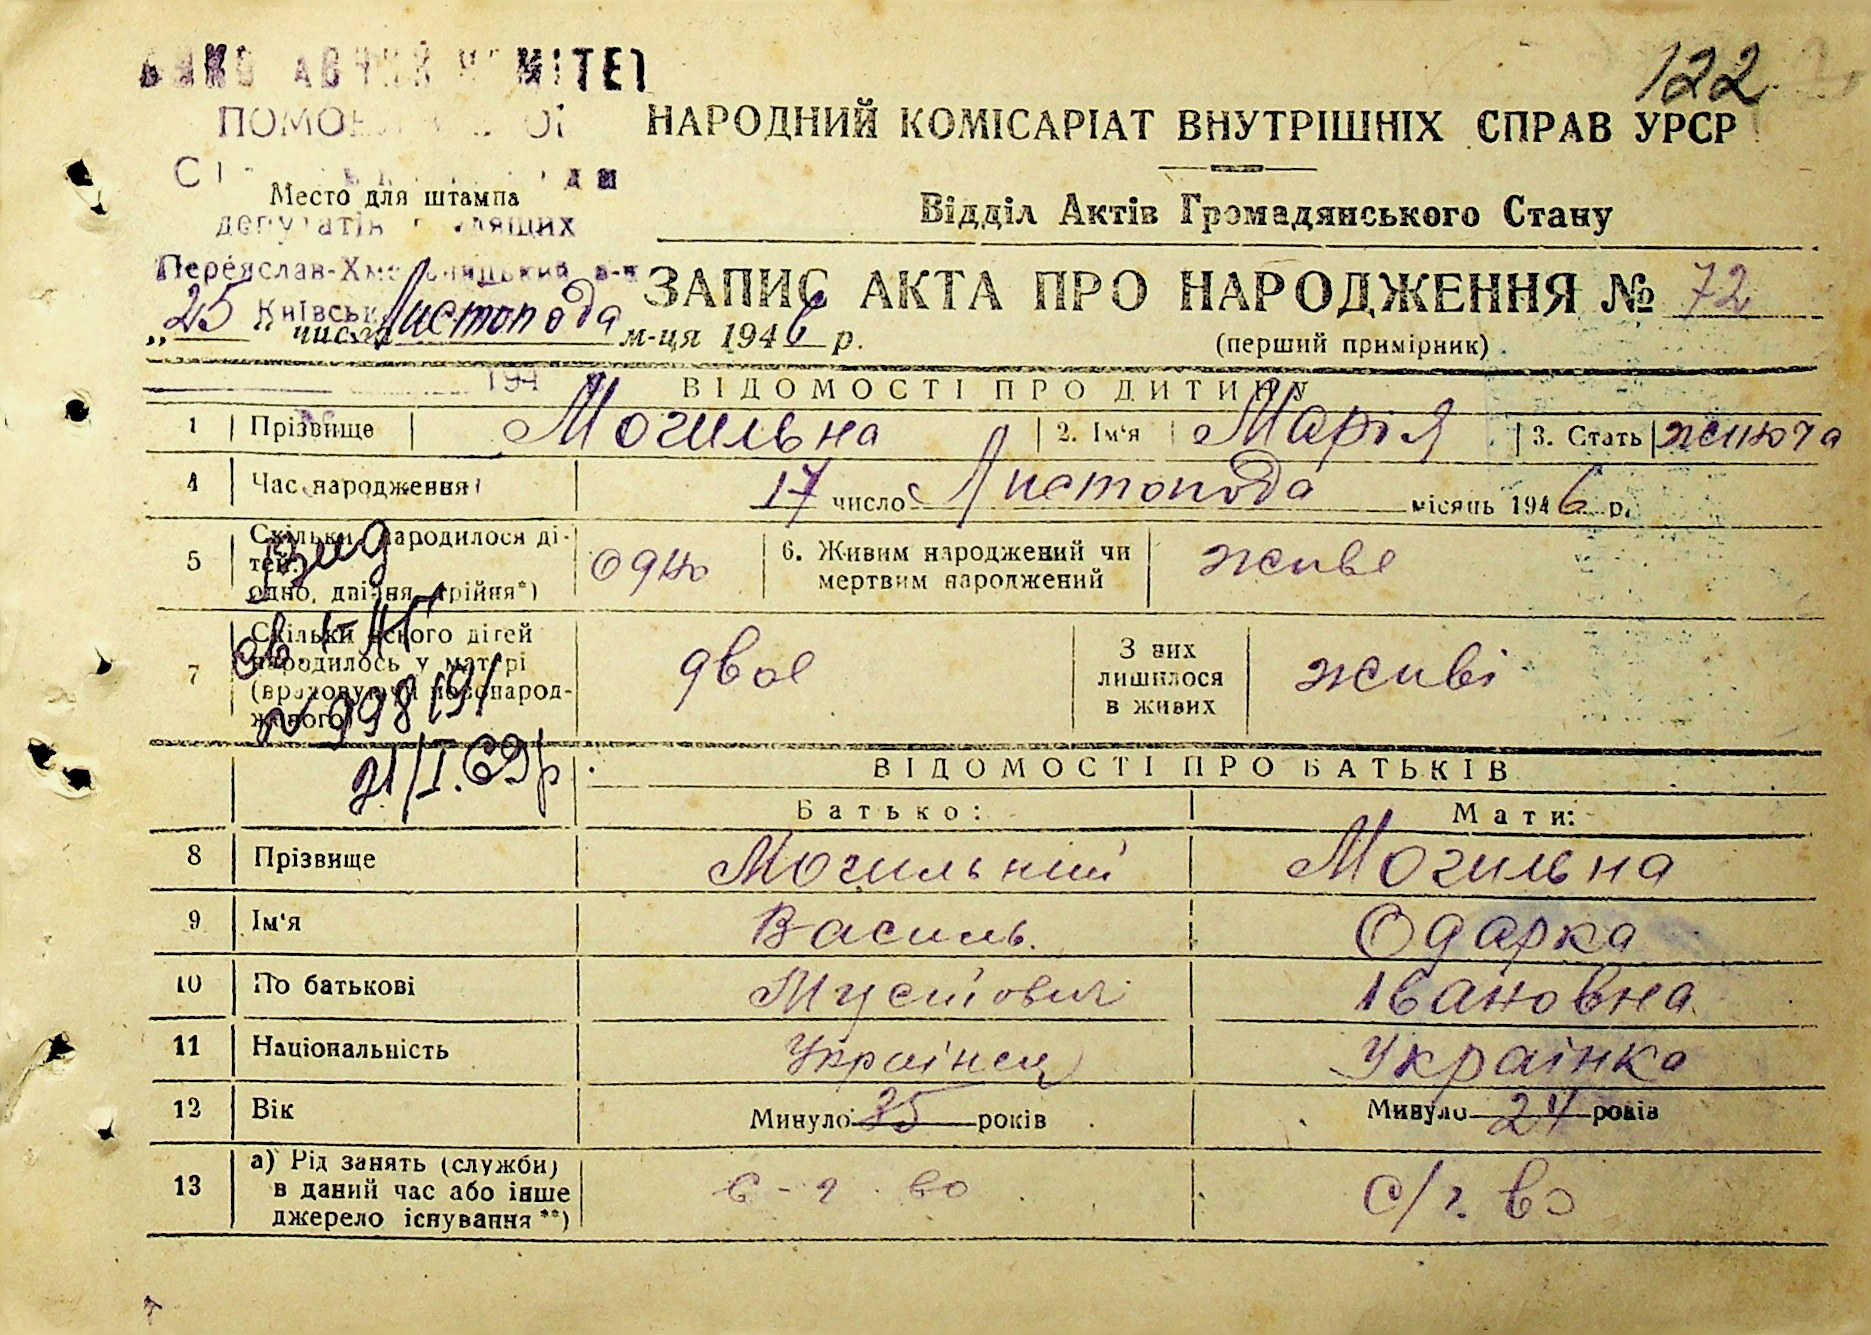 122
НАРОДНИЙ КОМІСАРІАТ ВНУТРІШНІХ СПРАВ УРСР
Место для штампа
Відділ Актів Громадянського Стану
депутатів трудящих
Переяслав-Хмельницький р-н
ЗАПИС АКТА ПРО НАРОДЖЕННЯ № 72
„25" числа Листопода м-ця 1946 р.
(перший примірник)
194
ВІДОМОСТІ ПРО ДИТИНУ
1 Прізвище Могильна 2. Ім'я Марія 3. Стать жиноча
4 Час народження 17 число Листопода місяць 1946 р.
5 Скільки народилося дітей: одно, двійня, трійня*) одно 6. Живим народжений чи мертвим народжений живе
7 Скільки всього дітей народилось у матері (враховуючи новонародженого) двое З них лишилося в живих живі
Вид
св І-НГ
№998191
21/I.69р
ВІДОМОСТІ ПРО БАТЬКІВ
Батько: Мати:
8 Прізвище Могильний Могильна
9 Ім'я Василь Одарка
10 По батькові Івановна
11 Національність Українец Українка
12 Вік Минуло 35 років Минуло 24 років
13 а) Рід занять (служби) в даний час або інше джерело існування **) с-г. во с/г. во